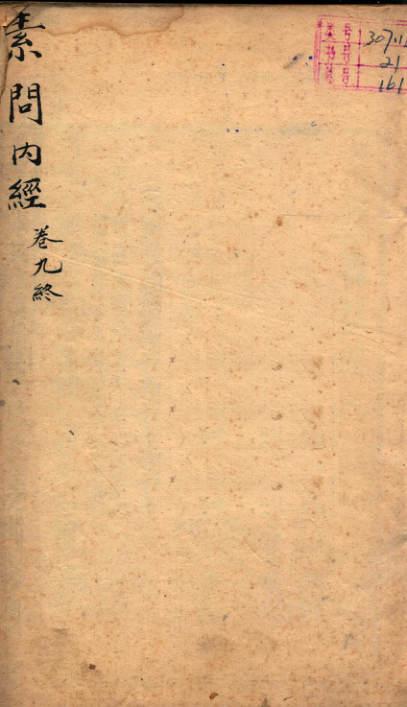 素問內經
卷九終
307.11
21
161